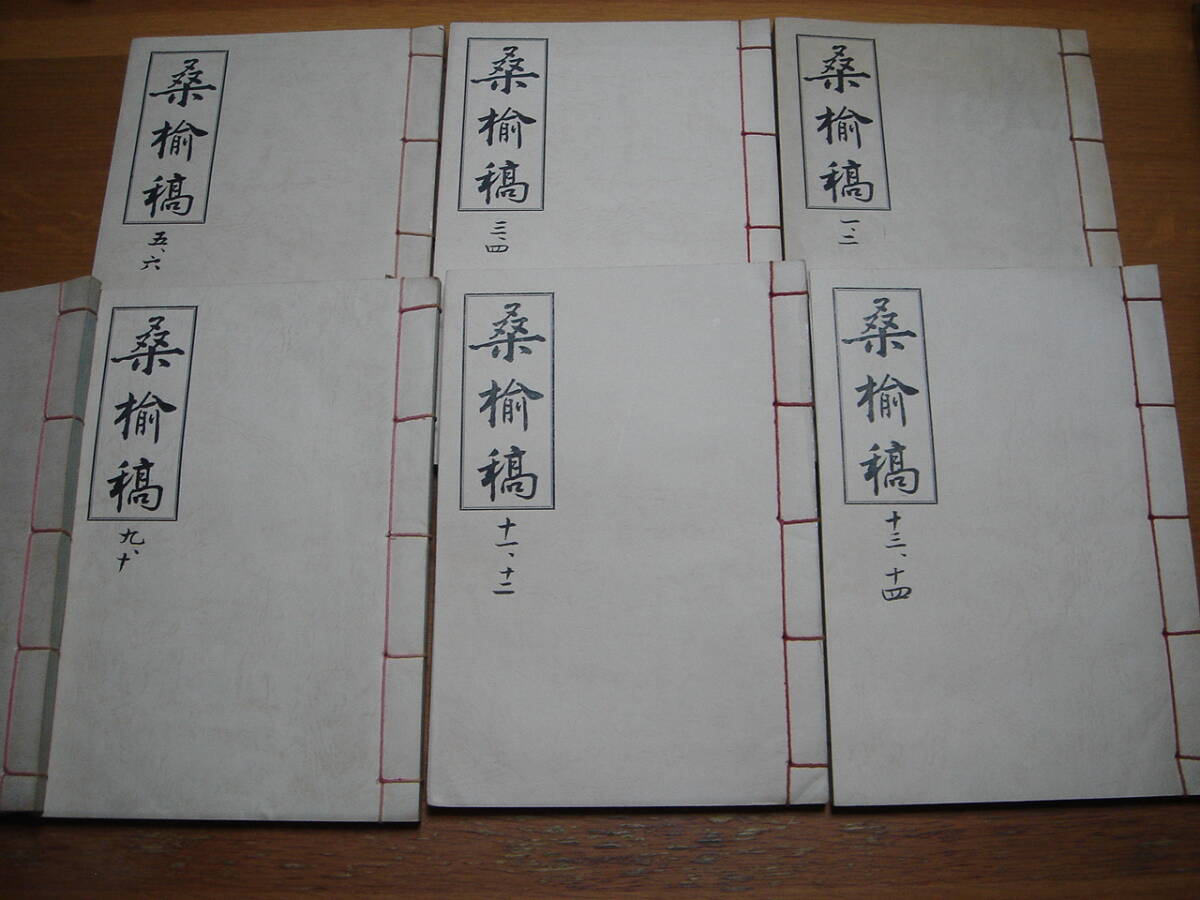 桑榆稿
一、二
桑榆稿
三、四
桑榆稿
五、六
桑榆稿
十三、十四
桑榆稿
十一、十二
桑榆稿
九、十